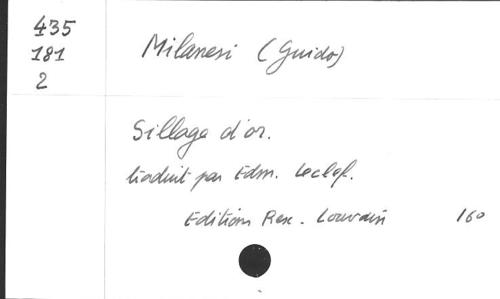 435
181
2
Milanesi (Guido)
Sillage d'or.
traduit par Edm. Leclef.
Editions Rex. Louvain 160